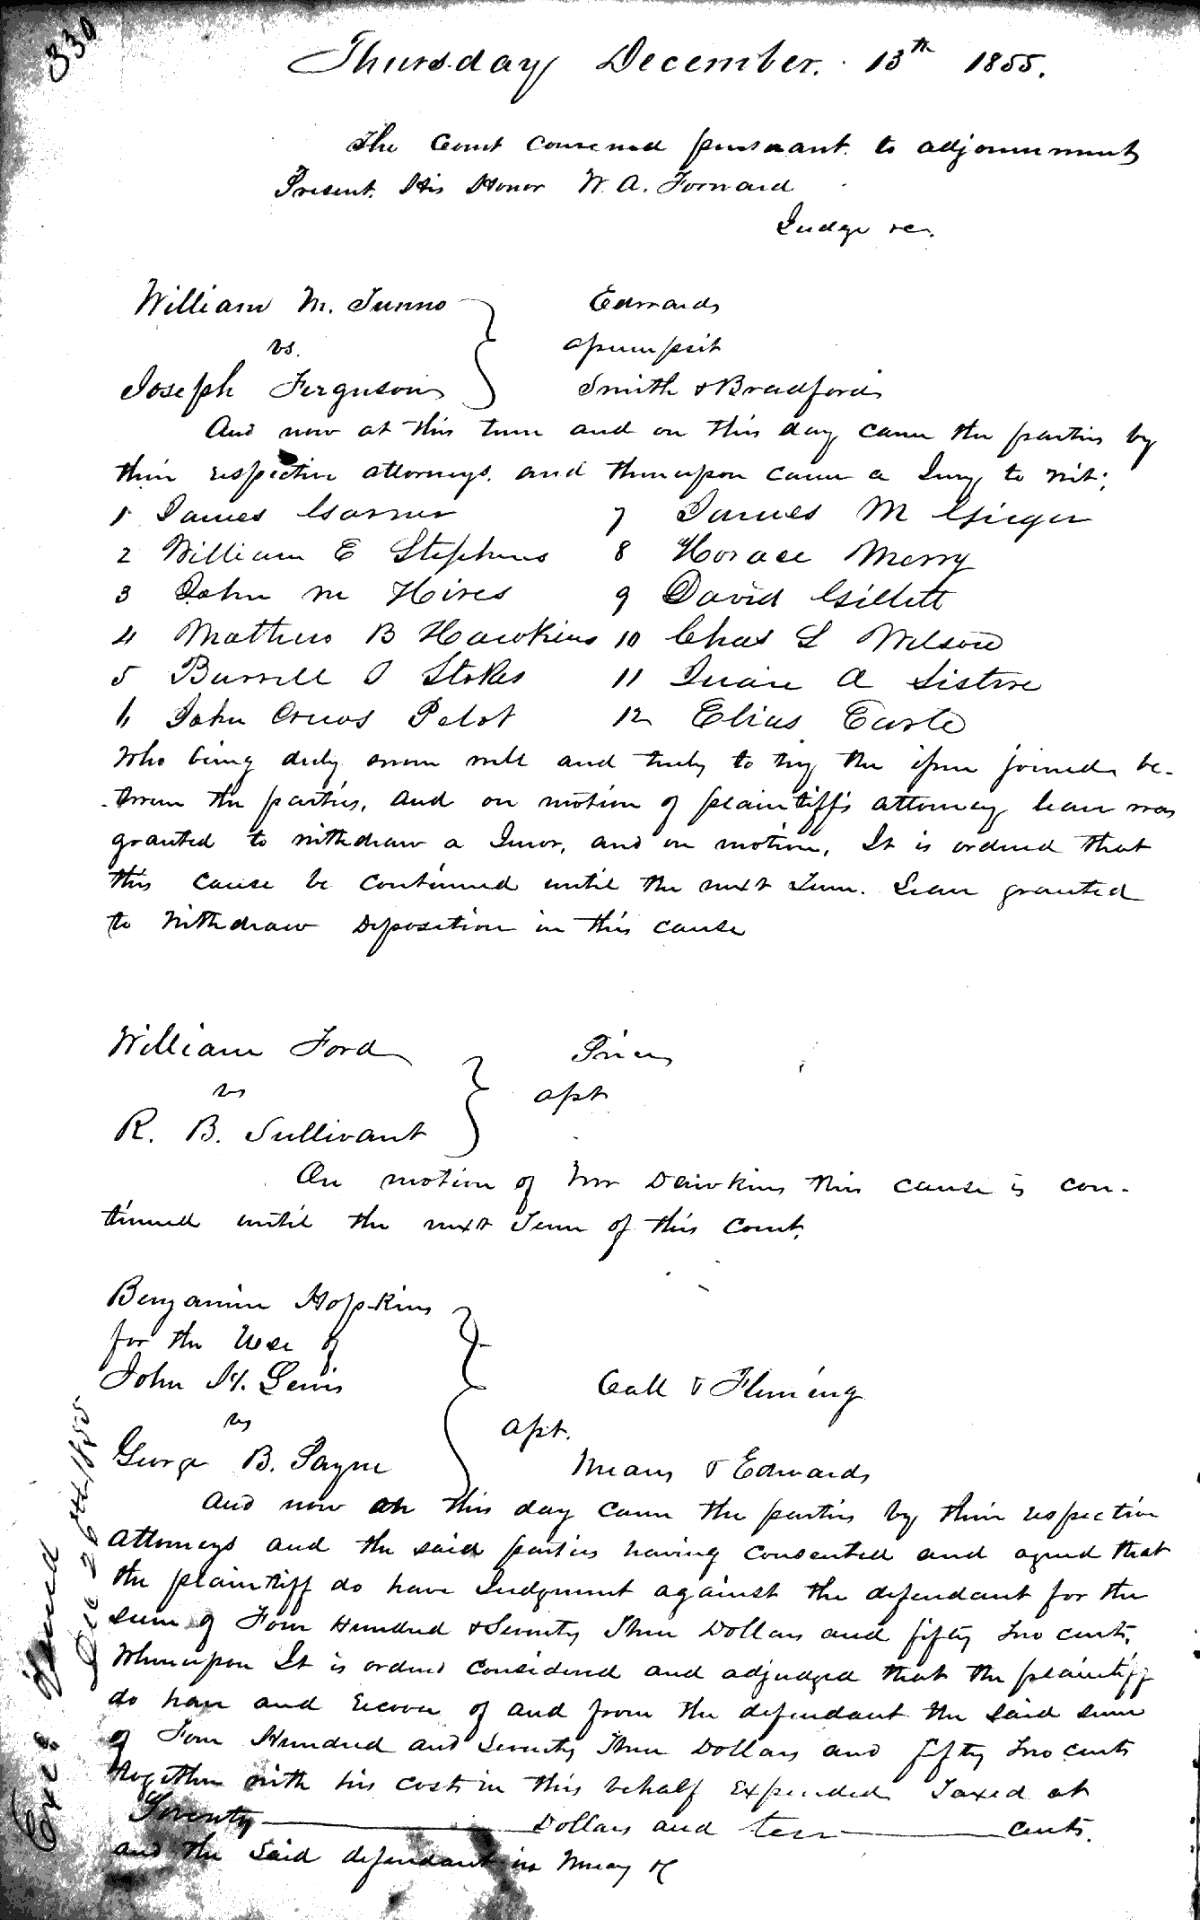 330
Thursday December. 13th 1855.
The Court convened pursuant to adjournment
Present. His Honor W. A. Forward
Judge &c.
William M. Tunno Edwards
vs. assumpsit
Joseph Ferguson Smith & Bradford
And now at this term and on this day came the parties by
their respective attorneys. and thereupon came a Jury to wit:
1 James Garner 7 James M Gieger
2 William E Stephens 8 Horace Merry
3 John M Hires 9 David Gillett
4 Mathew B Hawkins 10 Chas L Wilson
5 Burrell Stokes 11 A Sistre
6 John Crews Pelot 12 Elias Earle
Who being duly sworn well and truly to try the issue joined be-
-tween the parties, and on motion of plaintiff's attorney leave was
granted to withdraw a Juror, and on motion, It is ordered that
this cause be continued until the next Term. Leave granted
to withdraw Deposition in this cause
William Ford Price
vs apt
R. B. Sullivant
On motion of Mr Dawkins this cause is con-
tinued until the next Term of this Court.
Benjamin Hopkins
for the Use of
John H. Lewis Call & Fleming
vs apt.
George B. Payne Means & Edwards
And now on this day came the parties by their respective
attorneys and the said parties having consented and agreed that
the plaintiff do have Judgment against the defendant for the
sum of Four Hundred & Seventy Three Dollars and fifty two cents,
Whereupon It is ordered considered and adjudged that the plaintiff
do have and recover of and from the defendant the said sum
of Four Hundred and Seventy Three Dollars and fifty two cents
together with his costs in this behalf expended Taxed at
Twenty Dollars and ten cents.
and the said defendant in Mercy &c
Exe. issued
Dec 26th 1855